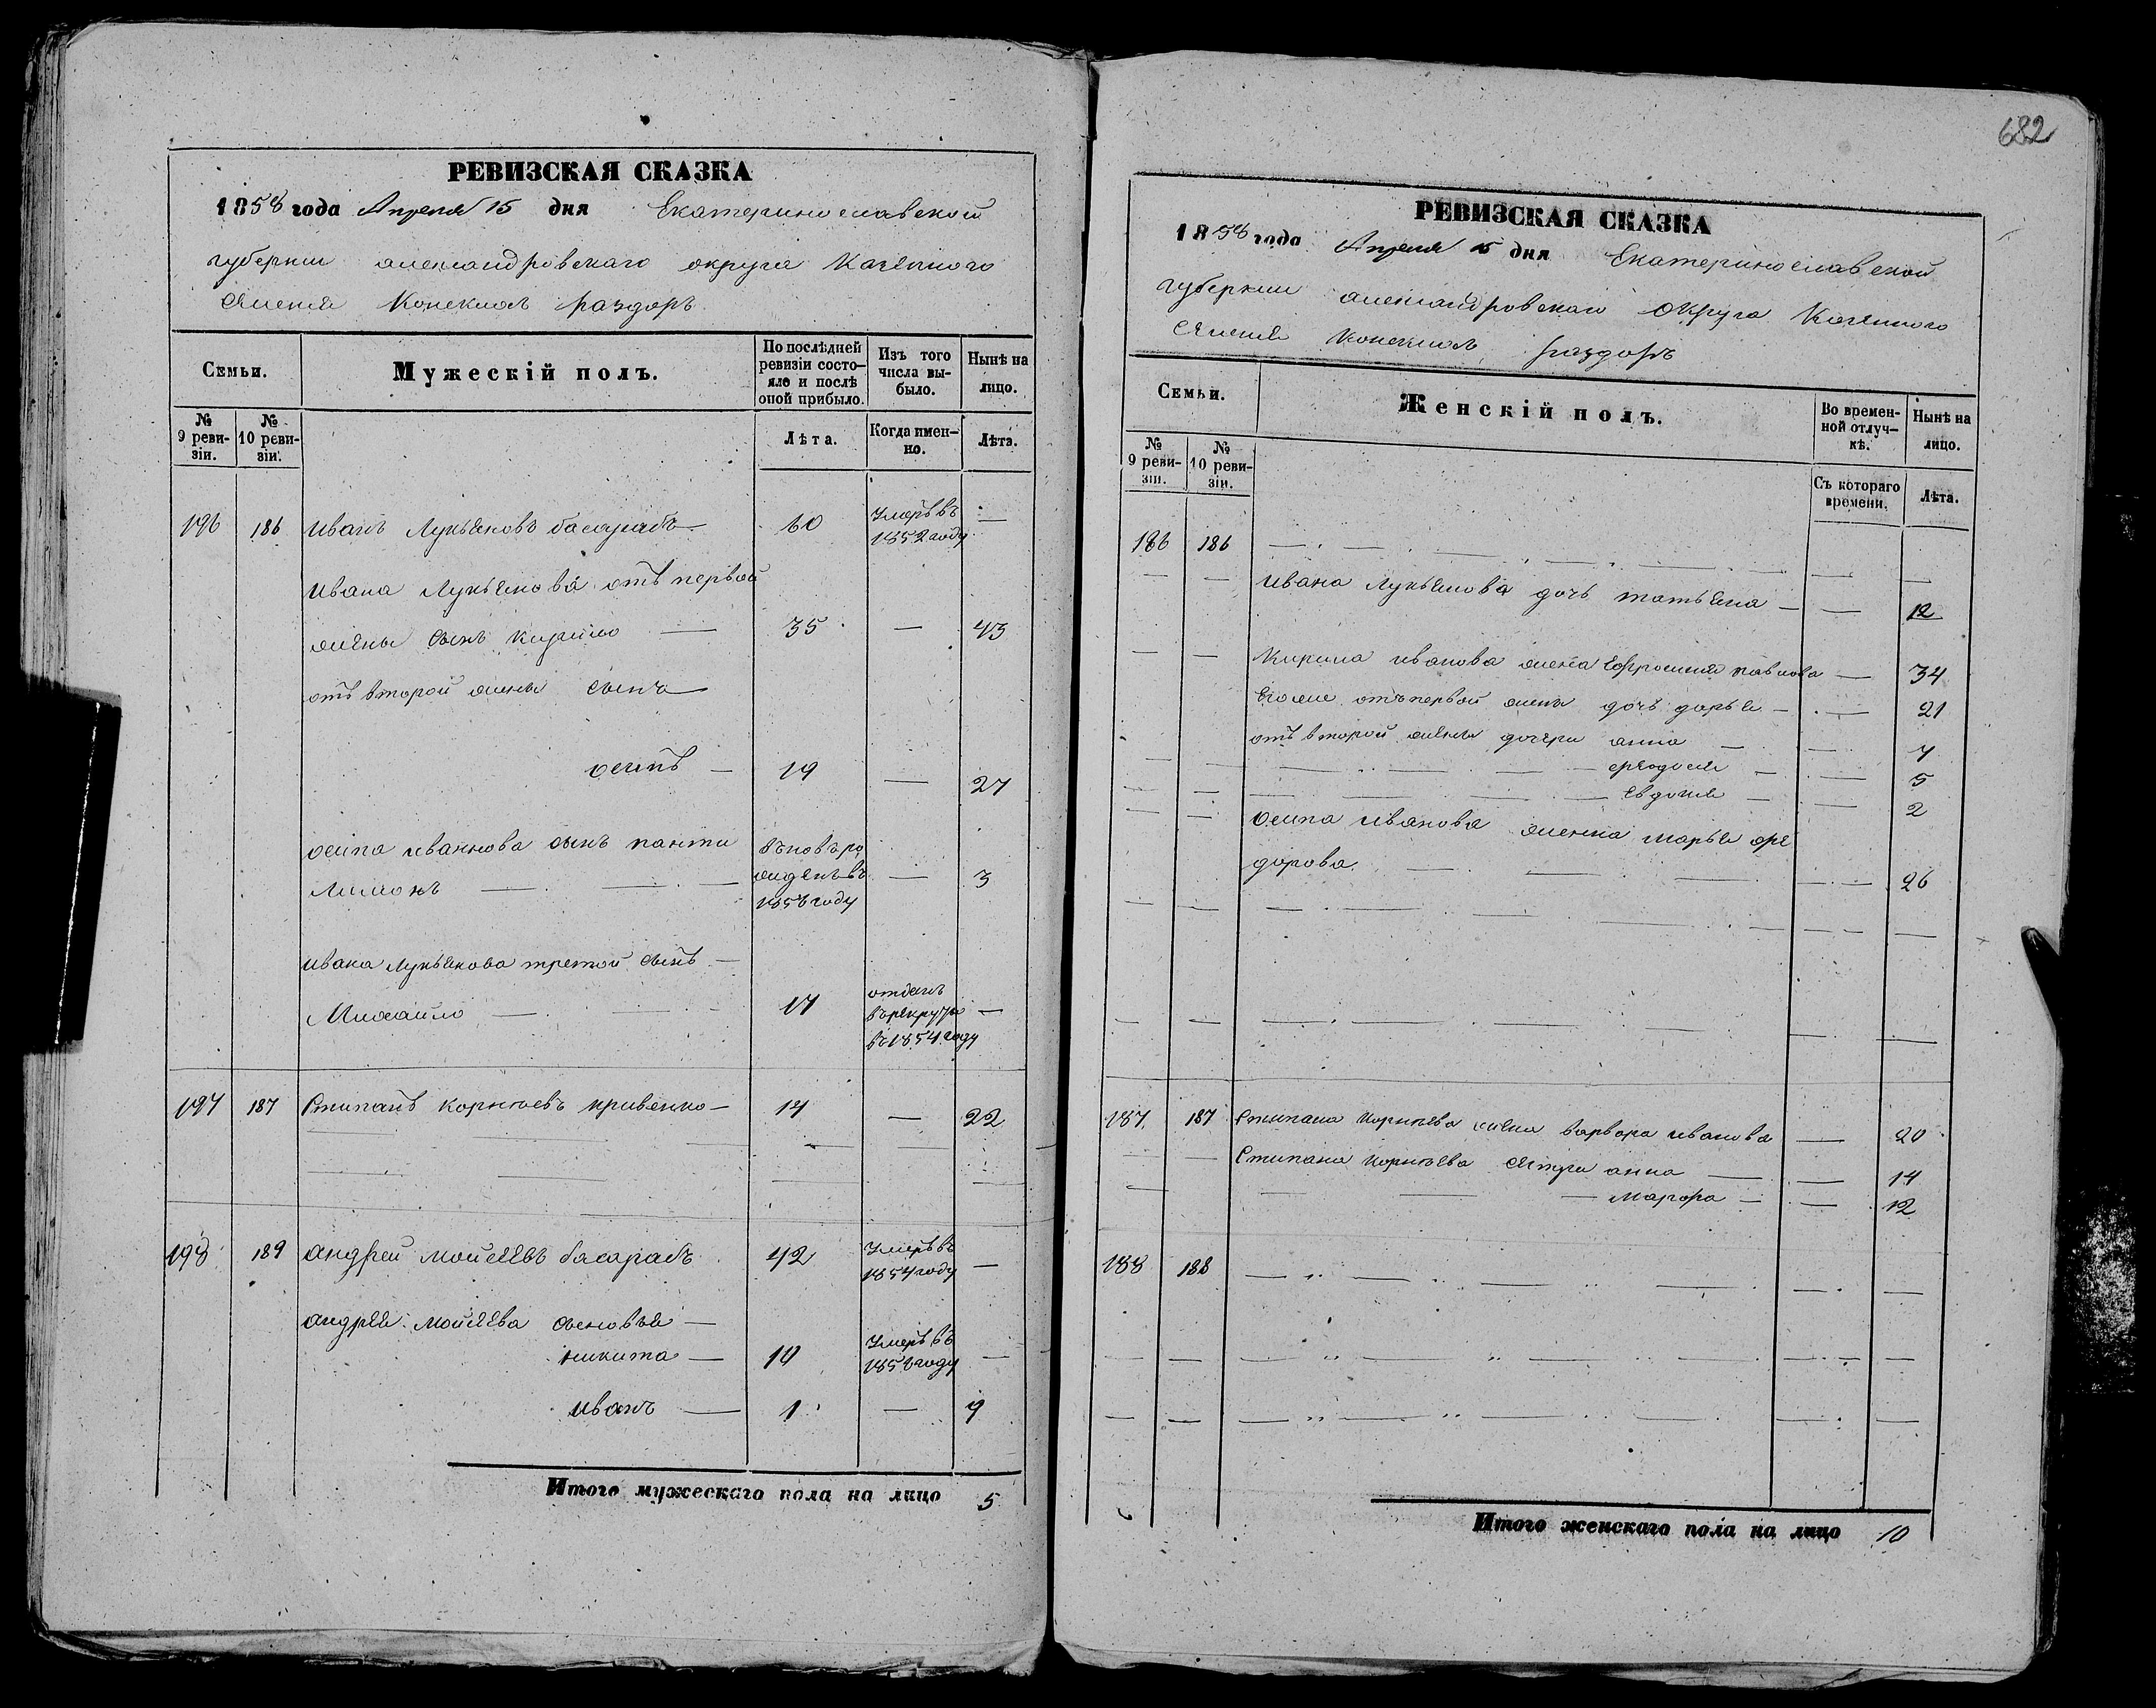 682
РЕВИЗСКАЯ СКАЗКА
1858 года Апреля 15 дня Екатеринославской
губернии александровскаго округа Казенного
селения Конскихъ раздоръ
Семьи.
Мужескій полъ.
По послѣдней
ревизіи состо-
яло и послѣ
оной прибыло.
Изъ того
числа вы-
было.
Нынѣ на
лицо.
№
9 реви-
зіи.
№
10 реви-
зіи.
Лѣта.
Когда имен-
но.
Лѣта.
196 186 Иванъ Лукьяновъ басарабъ — 60 Умеръ въ —
1852 году
Ивана Лукьянова отъ первой
жены сынъ Кирило — 35 — 43
отъ второй жены сынъ —
осипъ — 19 — 27
осипа иванова сынъ панти
лимонъ — — — вновь ро
жденъ въ — 3
году
Ивана Лукьянова третой сынъ —
Михайло — — — 17 отданъ
въ рекруты —
в 1854 году
197 187 Стипанъ Корнѣевъ кривенко — 14 — 22
198 189 андрей Мойсеевъ басарабъ 42 Умеръ въ —
1854 году
андрея Мойсеева сыновья —
никита — Умеръ въ —
году
иванъ — 1 — 9
Итого мужескаго пола на лицо 5
РЕВИЗСКАЯ СКАЗКА
1858 года Апреля 15 дня Екатеринославской
губернии александровскаго округа Казенного
селения Конскихъ раздоръ
Семьи.
Женскій полъ.
Во времен-
ной отлуч-
кѣ.
Нынѣ на
лицо.
№
9 реви-
зіи.
№
10 реви-
зіи.
Съ котораго
времени.
Лѣта.
186 186 — — — — —
— — ивана Лукьянова дочь татьяна — — 12
— — Кирила иванова жена Ефросиния павлова — 34
Егоже отъ первой жены дочь дарья — — 21
отъ второй жены дочери анна — — 7
— — — — федосия — — 5
— — — — — Евдокия — — 2
— — осипа иванова женка марья фе
дорова — — — — 26
187 187 Стипана Корнѣева жена варвара иванова — 20
— — Стипана Корнѣева сестри анна — — 14
— — — — марфа — — 12
188 188 — — — — — —
Итого женскаго пола на лицо 10